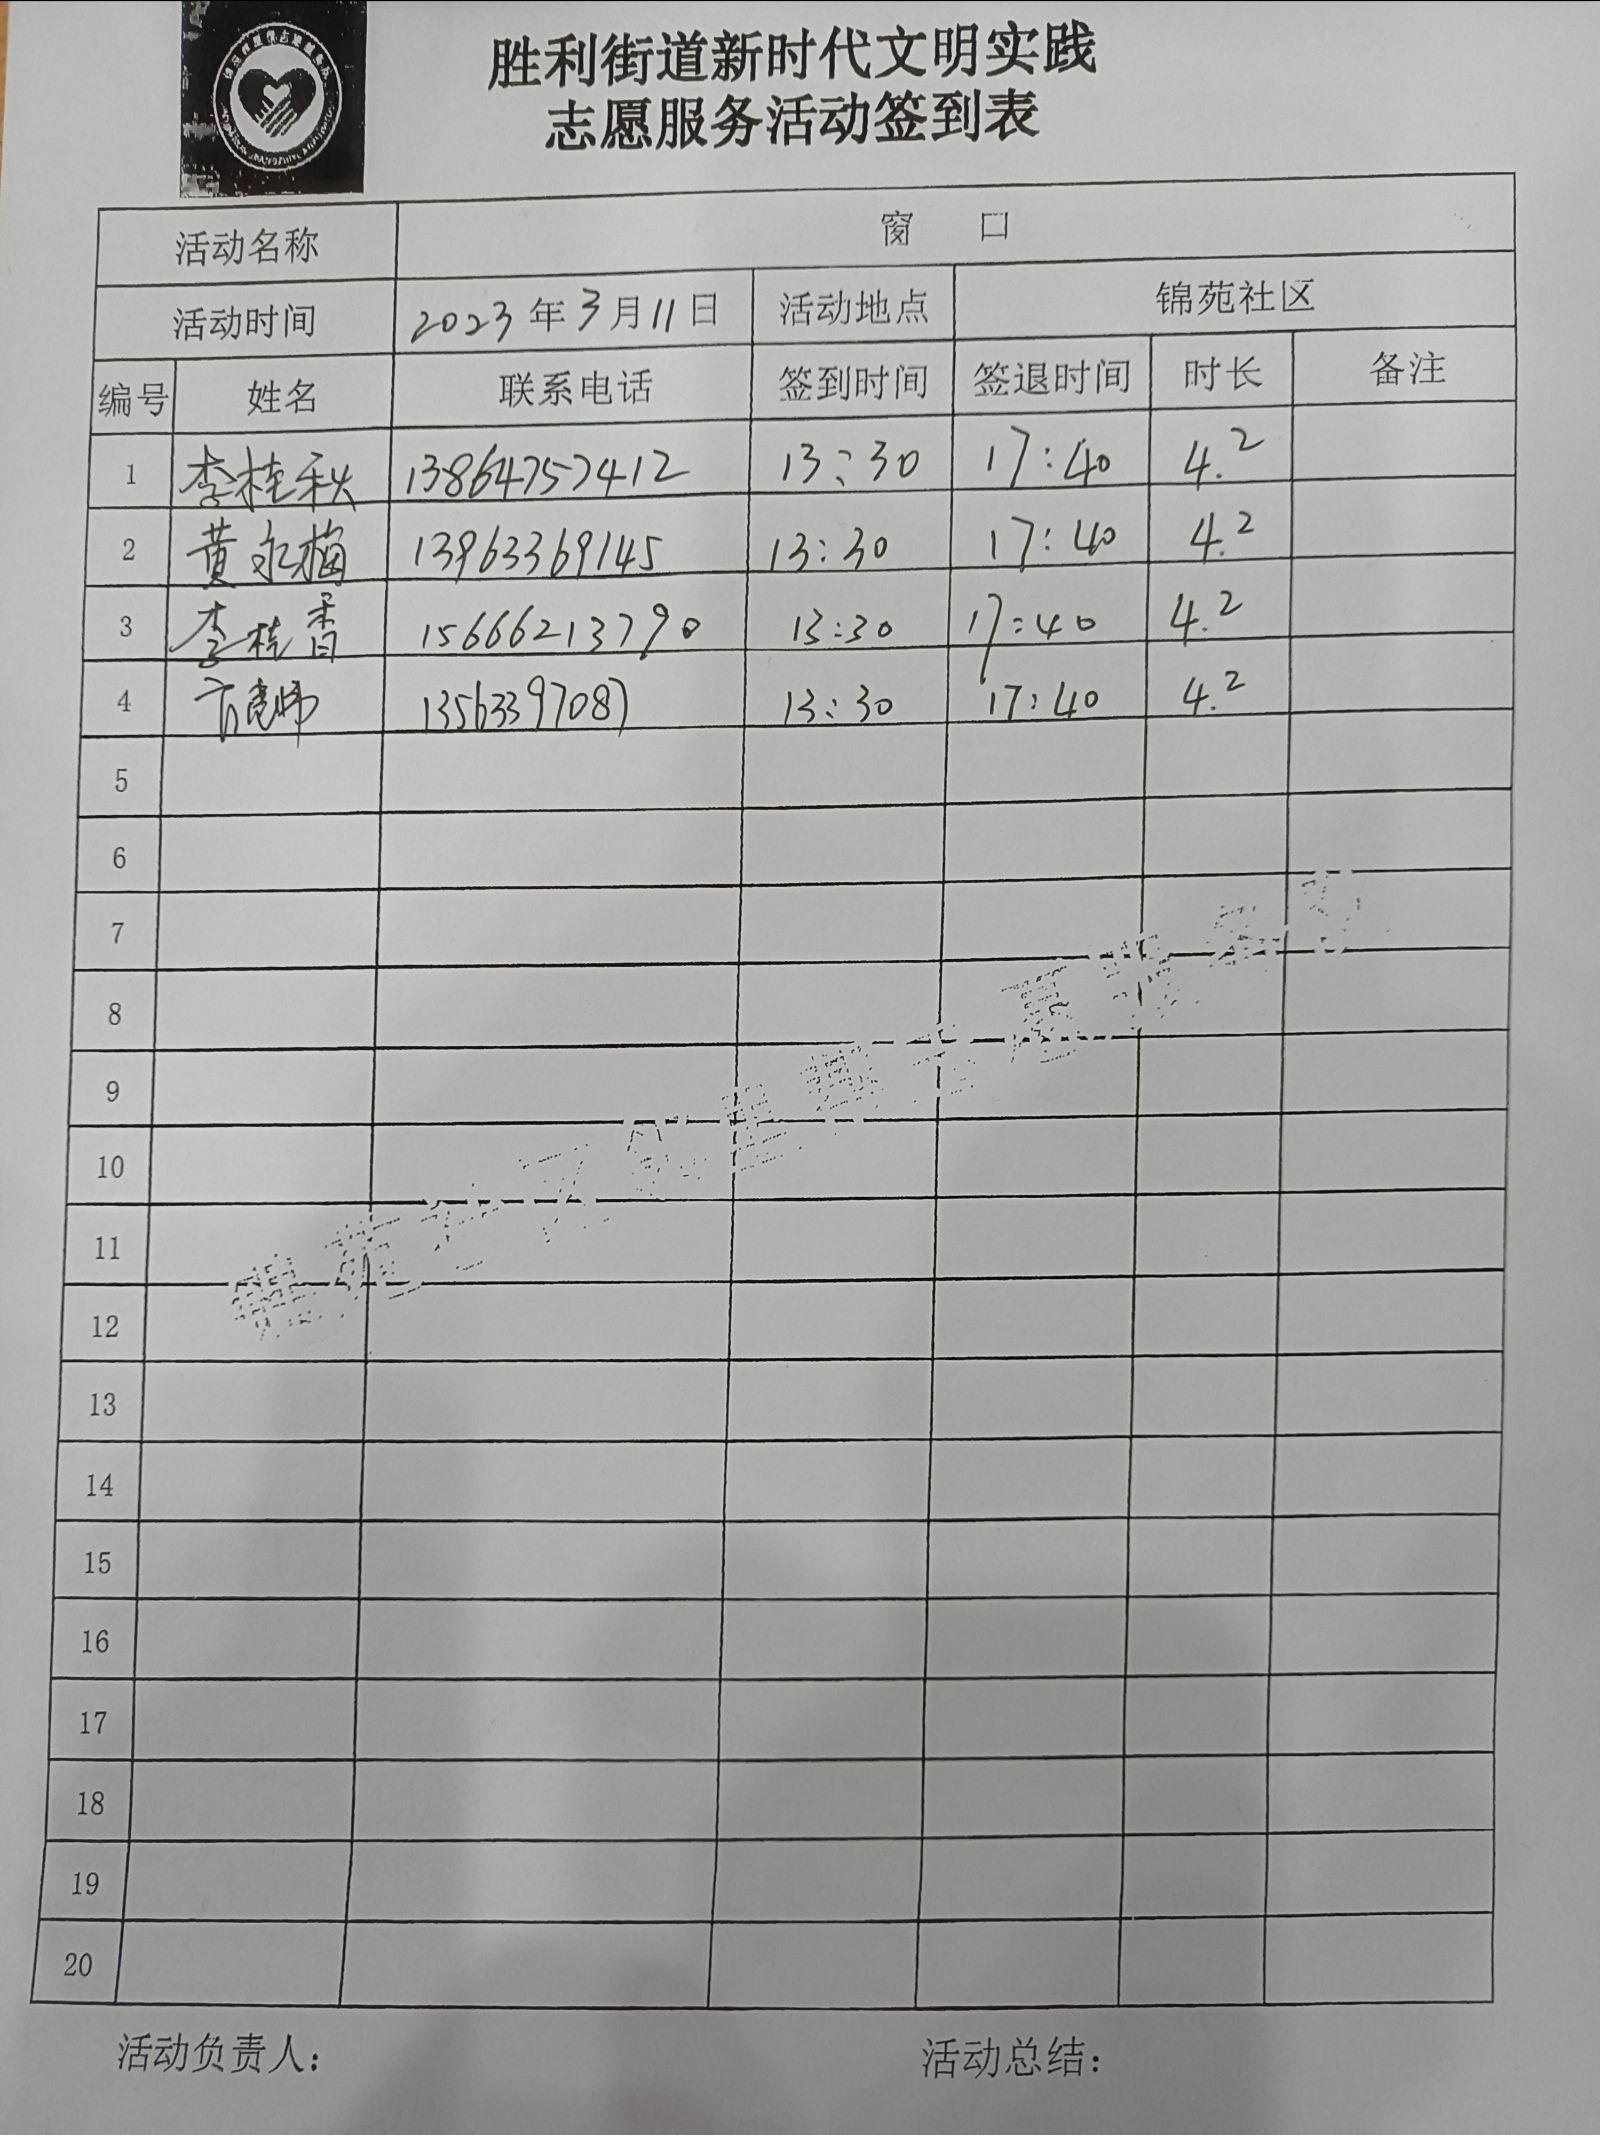 胜利街道新时代文明实践
志愿服务活动签到表
活动名称 窗 口
活动时间 2023年3月11日 活动地点 锦苑社区
编号 姓名 联系电话 签到时间 签退时间 时长 备注
1 李桂秋 13864757412 13:30 17:40 4.2
2 黄永梅 13963369145 13:30 17:40 4.2
3 李桂香 15666213790 13:30 17:40 4.2
4 13563397087 13:30 17:40 4.2
5
6
7
8
9
10
11
12
13
14
15
16
17
18
19
20
活动负责人: 活动总结: